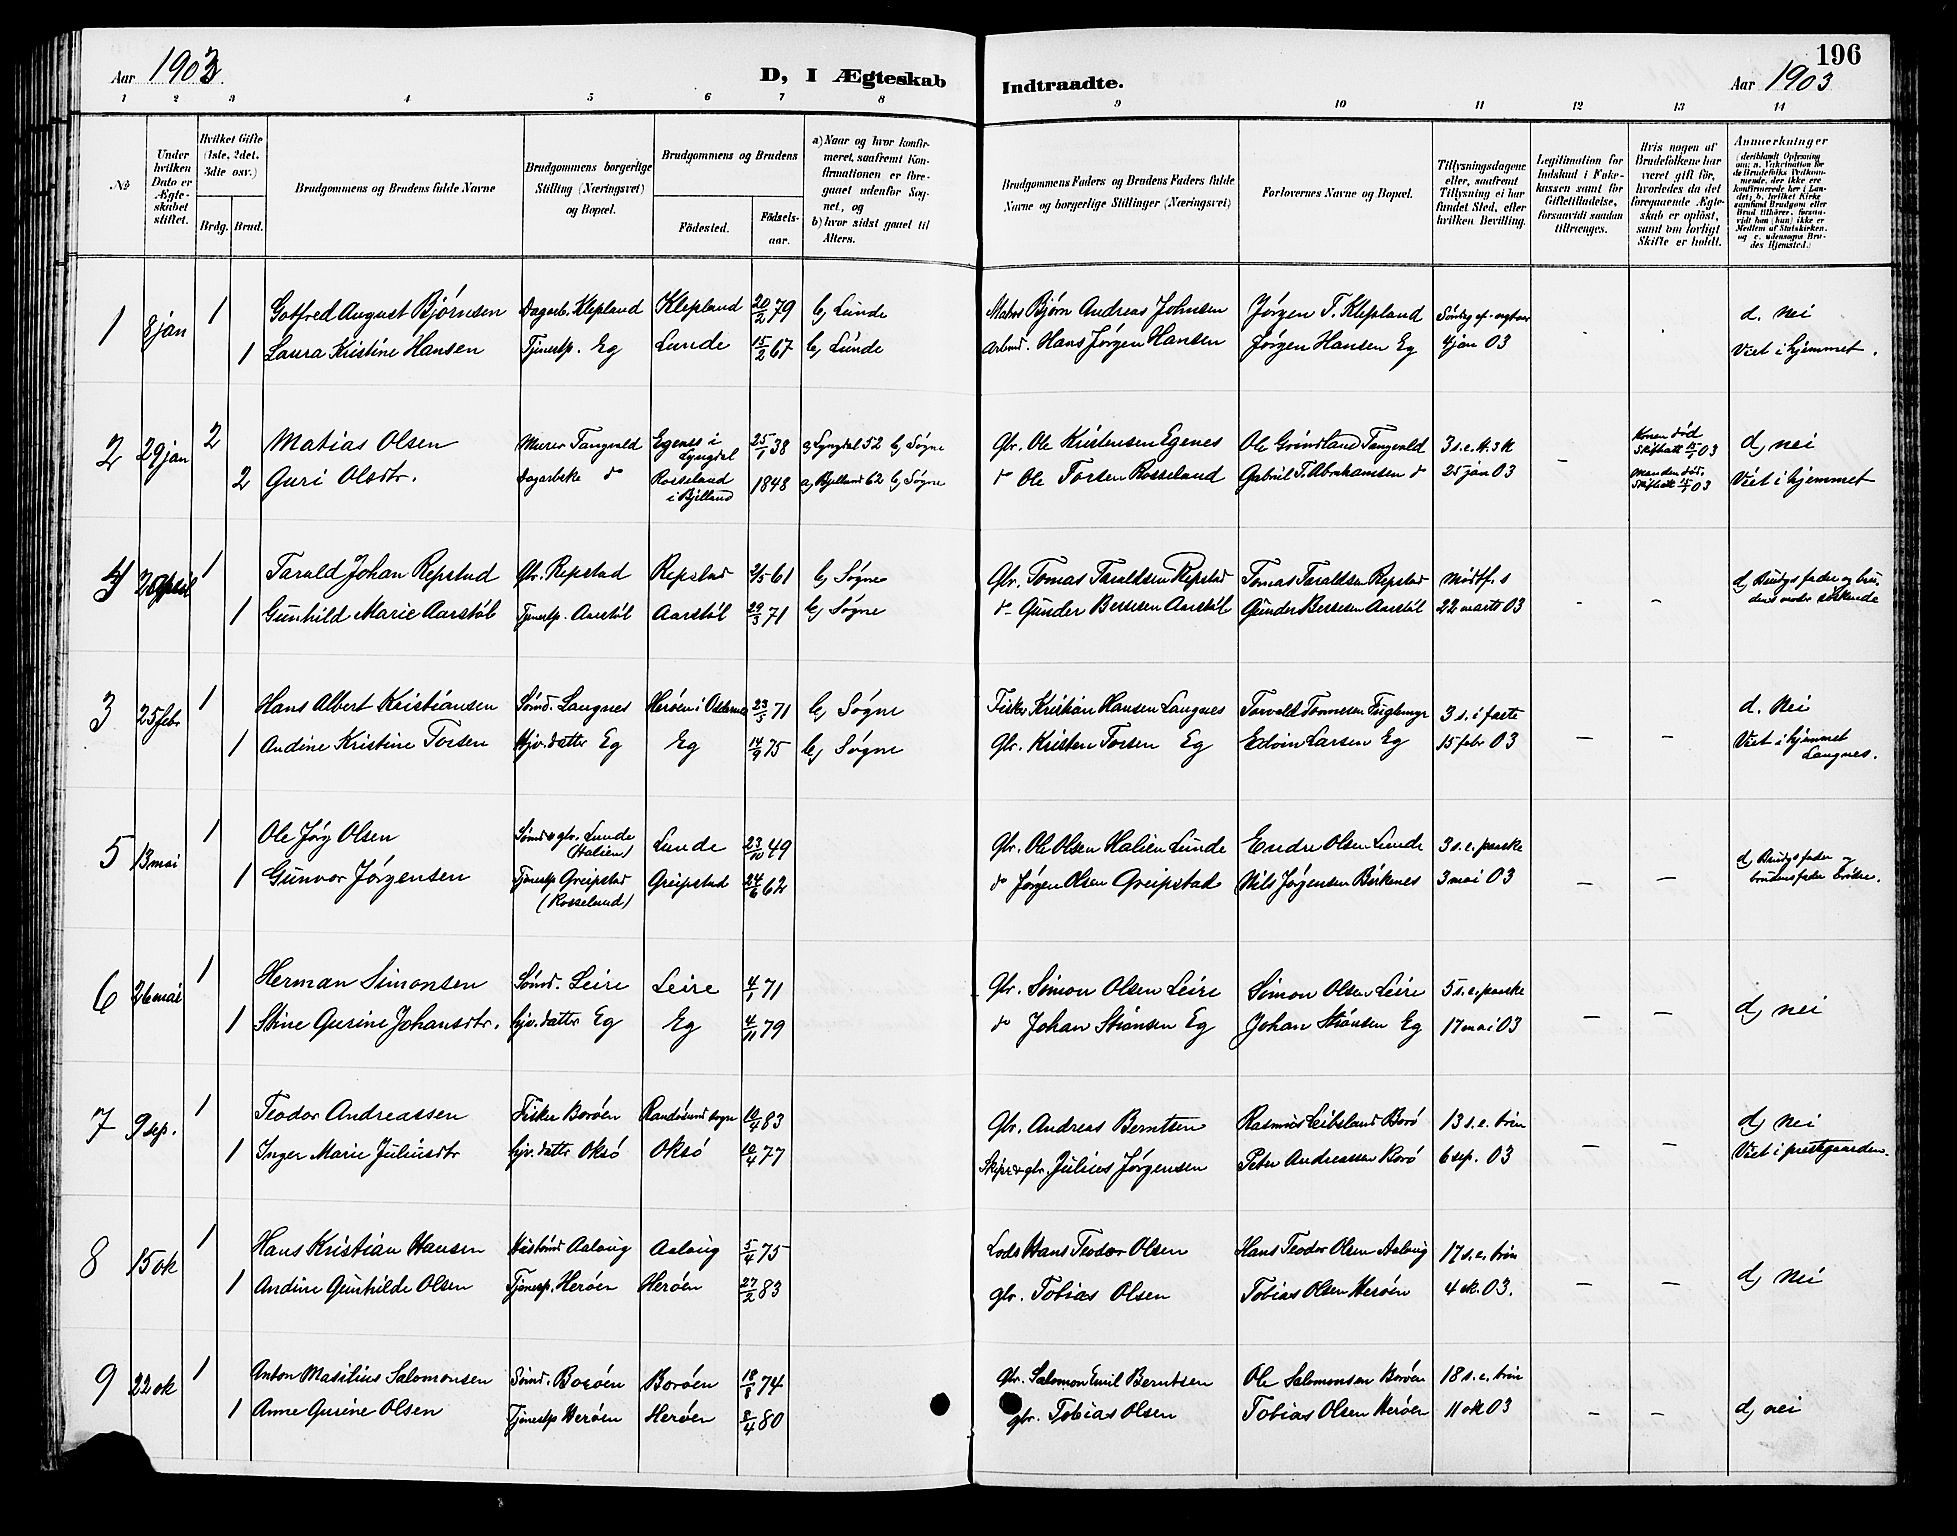 196
Aar 1903.
D, I Ægteskab
Indtraadte.
Aar 1903
1 2 3 4 5 6 7 8 9 10 11 12 13 14
No
Under hvilken Dato er Ægteskabet stiftet.
Hvilket Gifte (1ste, 2det, 3die osv.)
Brdg. Brud.
Brudgommens og Brudens fulde Navne
Brudgommens borgerlige Stilling (Næringsvei) og Bopæl.
Brudgommens og Brudens
Fødested.
Fødselsaar.
a) Naar og hvor konfirmeret, saafremt Konfirmationen er foregaaet udenfor Sognet, og
b) hvor sidst gaaet til Alters.
Brudgommens Faders og Brudens Faders fulde Navne og borgerlige Stillinger (Næringsvei)
Forlovernes Navne og Bopæl.
Tillysningsdagene eller, saafremt Tillysning ei har fundet Sted, efter hvilken Bevilling.
Legitimation for Indskud i Fattigkassen samt for Giftetilladelse, forsaavidt saadan tiltrænges.
Hvis nogen af Brudefolkene har været gift før, hvorledes da det foregaaende Ægteskab er opløst, samt om lovligt Skifte er holdt.
Anmærkninger
1 8 jan 1 Gotfred August Bjørnsen Dagarb. Klepland Klepland 20/2 79 b, Lunde Matros Bjørn Andreas Johnsen Jørgen T. Klepland d. nei
1 Laura Kristine Hansen Tjenestp. Eg Lunde 15/2 67 b, Lunde Arbmd. Hans Jørgen Hansen Jørgen Hansen Eg 4 jan 03 Viet i hjemmet.
2 29 jan 2 Matias Olsen Murer Tangvald Egenes i Lyngdal 25/1 38 a, Lyngdal 52 b, Søgne Gbr. Ole Kristensen Egenes Ole Grindland Tangvald 3 s.e. H.3k Konen død Skifteatt 15/1 03 d, nei
2 Guri Olsdtr. Dagarbske do Rosseland i Bjelland 1848 a, Bjelland 62 b, Søgne do Ole Torsen Rosseland Gabriel T. Abrahamsen do 25 jan 03 – Manden død. Skifteatt 15/1 03 Viet i hjemmet
4 2 april 1 Tarald Johan Repstad Gbr. Repstad Repstad 2/5 61 b, Søgne Gbr. Tomas Taraldsen Repstad Tomas Taraldsen Repstad midtf. s d, Brudgs fader og brudens moder søskende
1 Gunhild Marie Aarstøl Tjenestp. Aarstøl Aarstøl 20/3 71 b, Søgne do Gunder Bersesen Aarstøl Gunder Bersesen Aarstøl 22 marts 03 – –
3 25 febr 1 Hans Albert Kristiansen Sømd. Langnes Herøen i Oddernes 23/5 71 b, Søgne Fisker Kristian Hansen Langnes Torvald Tønnesen Fuglemyr 3 s. i faste d. nei
1 Andine Kristine Torsen Hjv. datter Eg Eg 14/9 75 b, Søgne Gbr. Kristen Torsen Eg Edvin Larsen Eg 15 febr 03 – – Viet i hjemmet Langnes.
5 13 mai 1 Ole Jørg Olsen Sømd & gbr. Lunde (Halien) Lunde 23/10 49 Gbr. Ole Olsen Halien Lunde Endre Olsen Lunde 3 s.e. paaske d, Brudgs fader og brudens fader brødre.
1 Gunvor Jørgensen Tjenestp Greipstad (Rosseland) Greipstad 24/6 62 do Jørgen Olsen Greipstad Nils Jørgensen Birkenes 3 mai 03 – –
6 26 mai 1 Herman Simonsen Sømd. Leire Leire 4/1 71 Gbr. Simon Olsen Leire Simon Olsen Leire 5 s.e. paaske
1 Stine Gurine Johansdtr. hjv. datter Eg Eg 4/11 79 do Johan Stiansen Eg Johan Stiansen Eg 17 mai 03 – – d, nei
7 9 sep. 1 Teodor Andreassen Fisker Borøen Randøsund sogn 10/4 83 Gbr. Andreas Berntsen Rasmus Leibsland Borø 13 s.e. trin d, nei
1 Inger Marie Juliusdtr hjv. datter Oksø Oksø 16/4 77 Skipr & gbr. Julius Jørgensen Peter Andreassen Borø 6 sep. 03 – – Viet i prestgaarden.
8 15 ok 1 Hans Kristian Hansen Aaloug Aaloug 5/4 75 Lods Hans Teodor Olsen Hans Teodor Olsen Aaloug 17 s.e. trin
1 Andine Gunhilde Olsen Tjenestp. Herøen Herøen 27/2 83 gbr. Tobias Olsen Tobias Olsen Herøen 4 ok. 03. – – d, nei
9 22 ok 1 Anton Masilius Salomonsen Sømd. Borøen Borøen 18/8 74 gbr. Salomon Emil Berntsen Ole Salomonsen Borøen 18 s.e. trin
1 Anne Gurine Olsen Tjenestp Herøen Herøen 8/4 80 gbr. Tobias Olsen Tobias Olsen Herøen 11 ok 03 – – d, nei